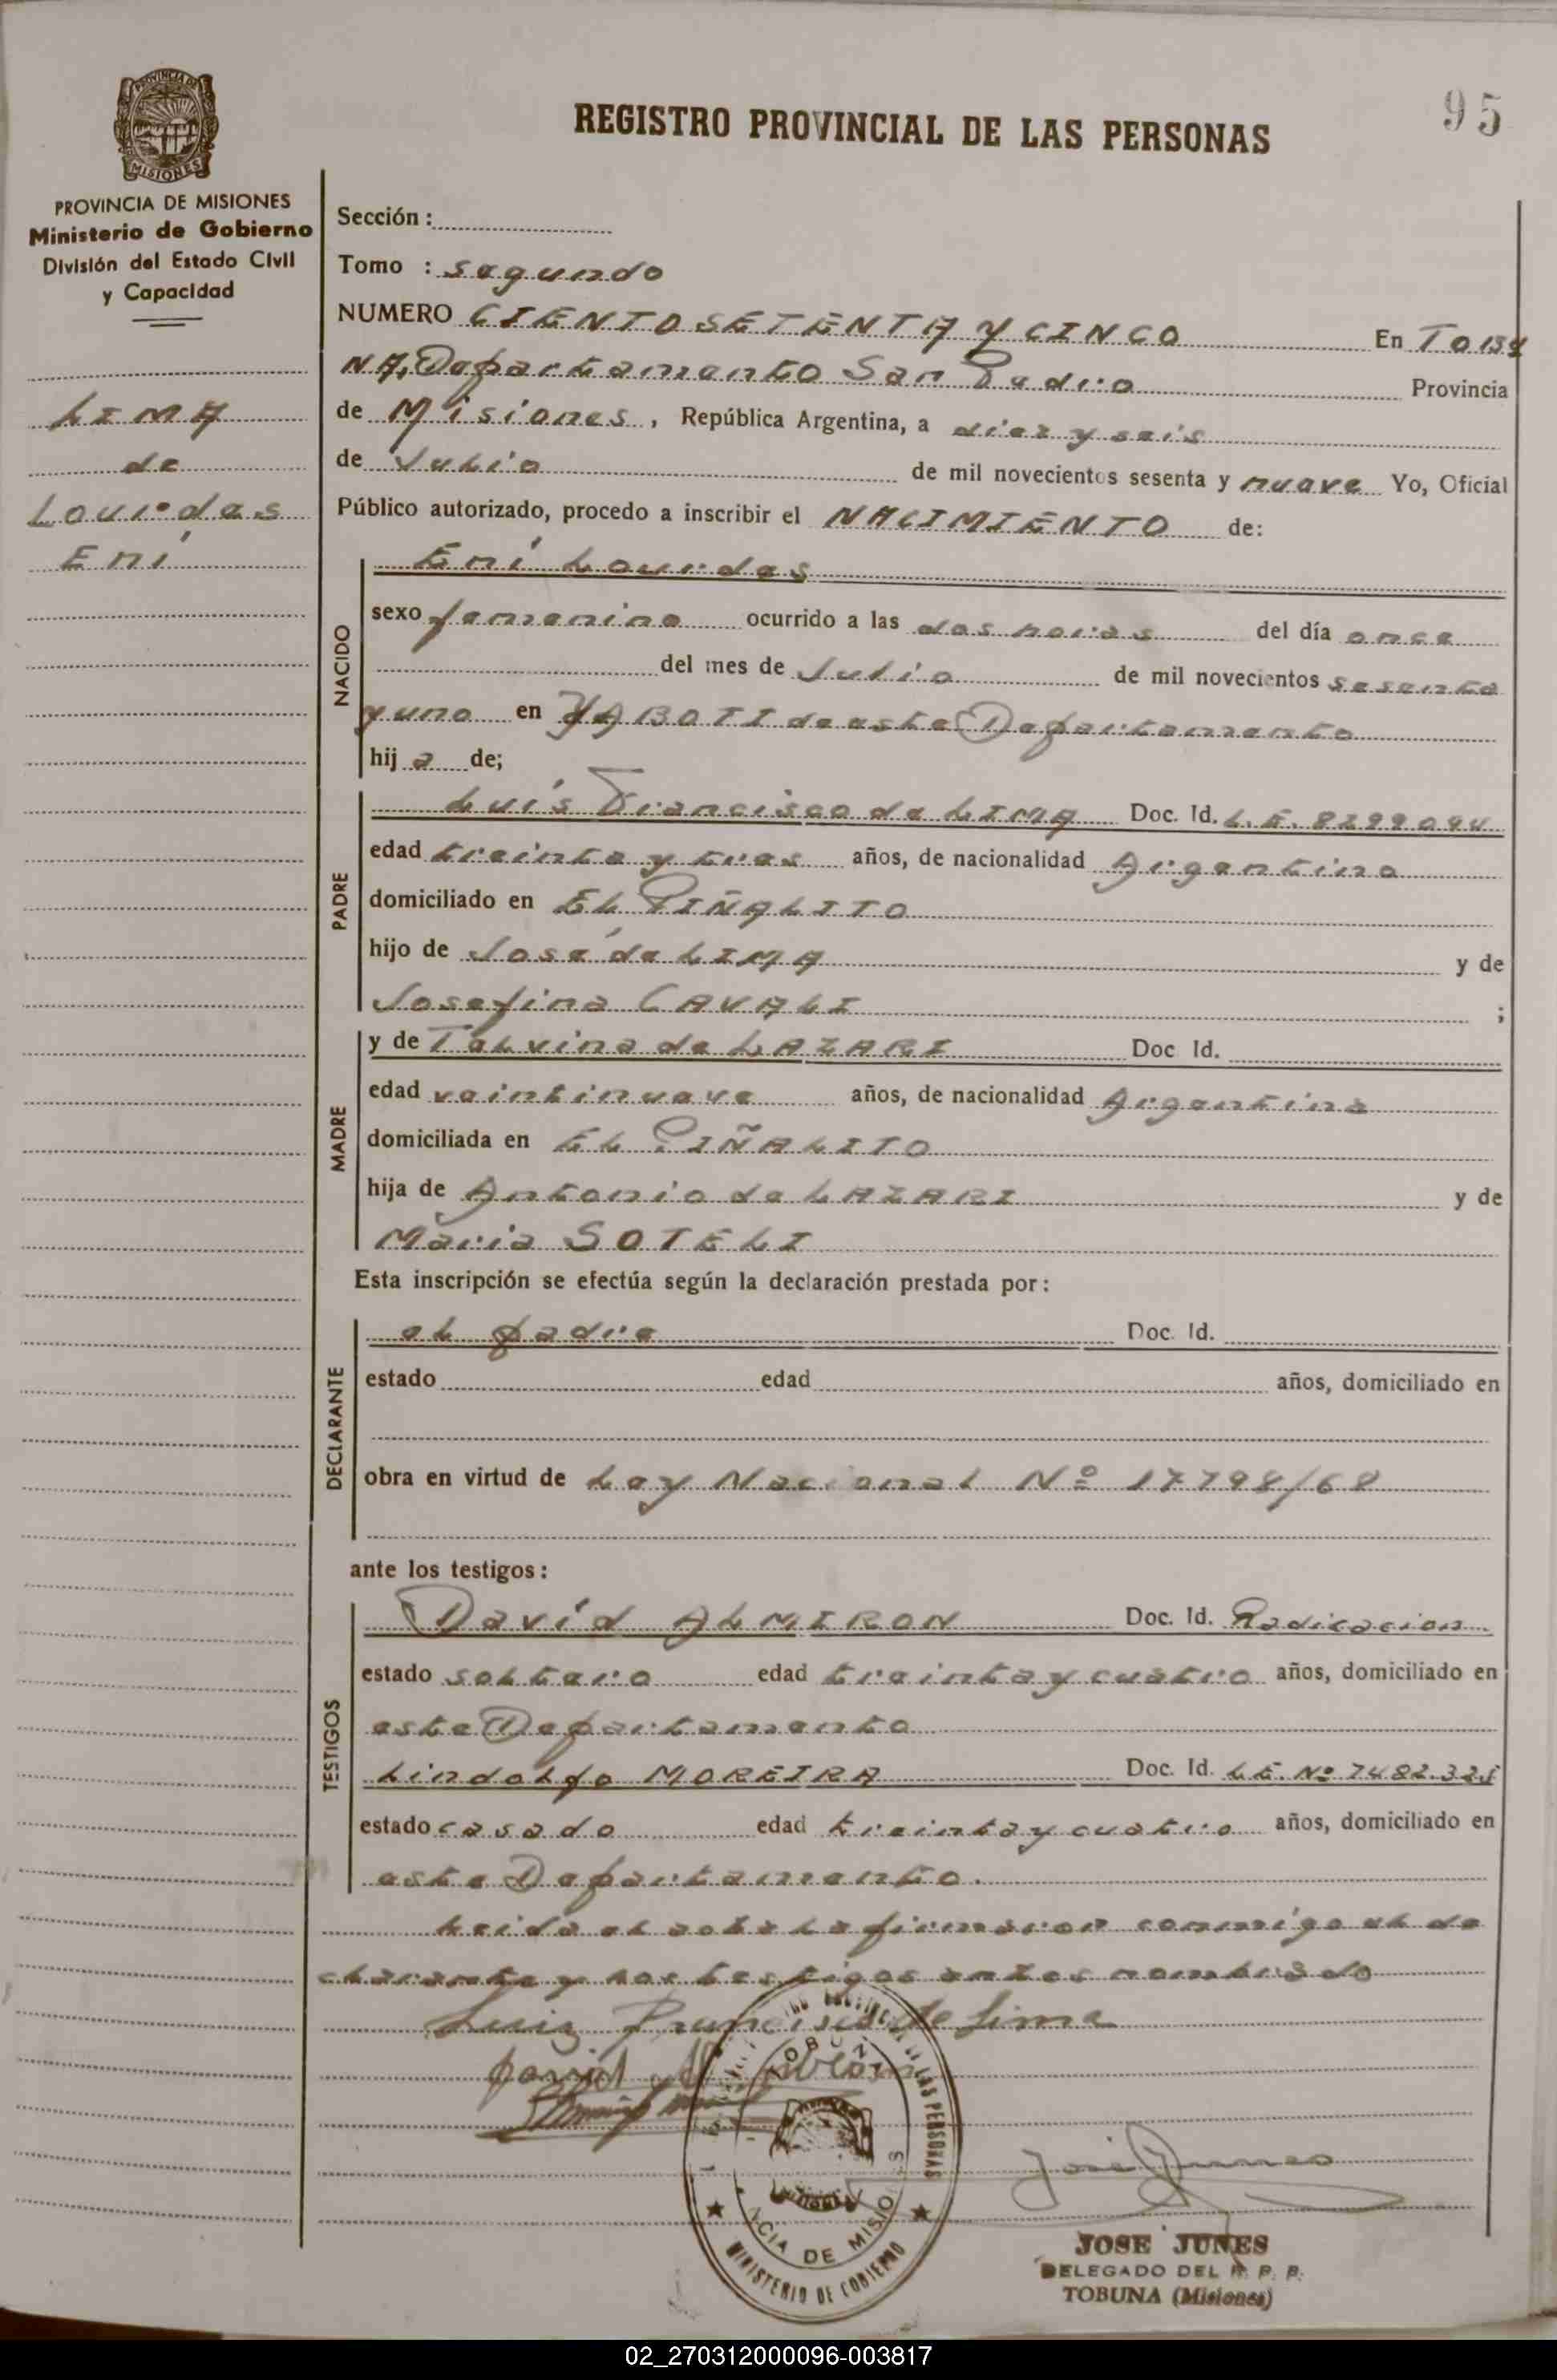 95
REGISTRO PROVINCIAL DE LAS PERSONAS
MISIONES
PROVINCIA DE MISIONES
Ministerio de Gobierno
División del Estado Civil
y Capacidad
LIMA
de
Lourdes
Ení
Sección :
Tomo : segundo
NUMERO CIENTO SETENTA Y CINCO En TOBU
NA, Departamento San Pedro Provincia
de Misiones, República Argentina, a diez y seis
de Julio de mil novecientos sesenta y nueve Yo, Oficial
Público autorizado, procedo a inscribir el NACIMIENTO de:
NACIDO
Ení Lourdes
sexo femenino ocurrido a las dos horas del día once
del mes de Julio de mil novecientos sesenta
y uno en YABOTI de este Departamento
hij a de;
PADRE
Luís Francisco de LIMA Doc. Id. L.E. 8299094
edad treinta y tres años, de nacionalidad Argentino
domiciliado en EL PIÑALITO
hijo de José de LIMA y de
Josefina CAVALI ;
MADRE
y de Talvina de LAZARI Doc Id.
edad veintinueve años, de nacionalidad Argentina
domiciliada en EL PIÑALITO
hija de Antonio de LAZARI y de
Maria SOTELI
Esta inscripción se efectúa según la declaración prestada por :
DECLARANTE
el padre Doc. Id.
estado edad años, domiciliado en
obra en virtud de Ley Nacional Nº 17798/68
ante los testigos :
TESTIGOS
Davíd ALMIRON Doc. Id. Radicacion
estado soltero edad treinta y cuatro años, domiciliado en
este Departamento
Lindolfo MOREIRA Doc. Id. L.E. Nº 7482.325
estado casado edad treinta y cuatro años, domiciliado en
este Departamento.
Leida el acta la firmaron conmigo el de
clarante y los testigos antes nombrado
Luiz Francisco de Lima
David
LAS PERSONAS
DE MISIO
MINISTERIO DE GOBIERNO
José Junes
JOSE JUNES
DELEGADO DEL R. P. P.
TOBUNA (Misiones)
02_270312000096-003817